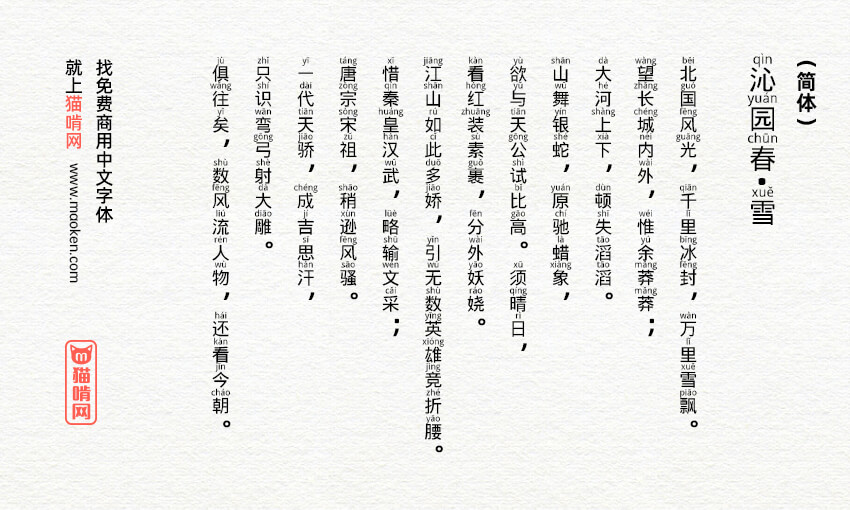 (简体)
qìn yuán chūn xuě
沁园春·雪
běi guó fēng guāng qiān lǐ bīng fēng wàn lǐ xuě piāo
北国风光，千里冰封，万里雪飘。
wàng zhǎng chéng nèi wài wéi yú mǎng mǎng
望长城内外，惟余莽莽；
dà hé shàng xià dùn shī tāo tāo
大河上下，顿失滔滔。
shān wǔ yín shé yuán chí là xiàng
山舞银蛇，原驰蜡象，
yù yǔ tiān gōng shì bǐ gāo xū qíng rì
欲与天公试比高。须晴日，
kàn hóng zhuāng sù guǒ fēn wài yāo ráo
看红装素裹，分外妖娆。
jiāng shān rú cǐ duō jiāo yǐn wú shù yīng xióng jìng zhé yāo
江山如此多娇，引无数英雄竞折腰。
xī qín huáng hàn wǔ lüè shū wén cǎi
惜秦皇汉武，略输文采；
táng zōng sòng zǔ shāo xùn fēng sāo
唐宗宋祖，稍逊风骚。
yī dài tiān jiāo chéng jí sī hàn
一代天骄，成吉思汗，
zhǐ shí wān gōng shè dà diāo
只识弯弓射大雕。
jù wǎng yǐ shù fēng liú rén wù hái kàn jīn cháo
俱往矣，数风流人物，还看今朝。
找免费商用中文字体
就上猫啃网 www.mooken.com
猫啃网